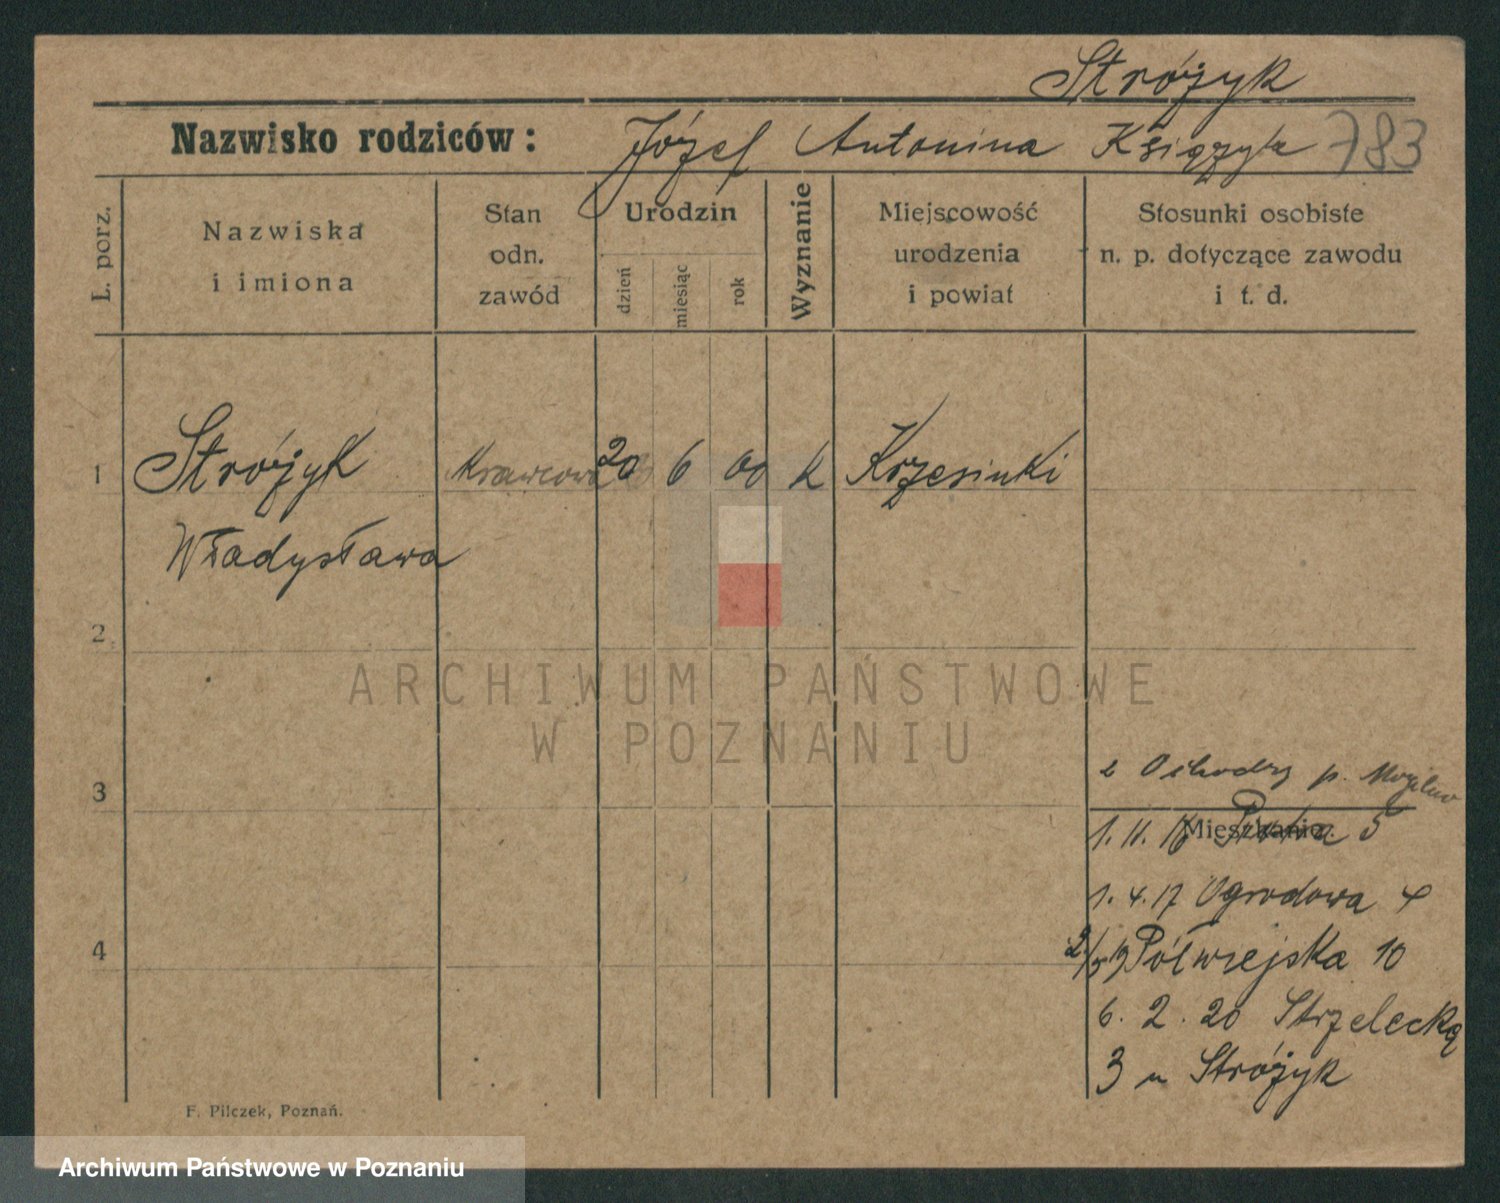 Stróżyk
Nazwisko rodziców: Józef Antonina Książyk 783
L. porz.
Nazwiska
i imiona
Stan
odn.
zawód
Urodzin
dzień
miesiąc
rok
Wyznanie
Miejscowość
urodzenia
i powiat
Stosunki osobiste
n. p. dotyczące zawodu
i t. d.
1 Stróżyk Krawcowa 20 6 00 k Krzesinki
Władysława
2
ARCHIWUM PAŃSTWOWE
W POZNANIU
3
z p. Mogilno
Mieszkanie.
1. 11. 16 5
1. 4. 17 Ogrodowa 4
4
2/5 19 Półwiejska 10
6. 2. 20 Strzelecką
3 u Stróżyk
F. Pilczek, Poznań.
Archiwum Państwowe w Poznaniu